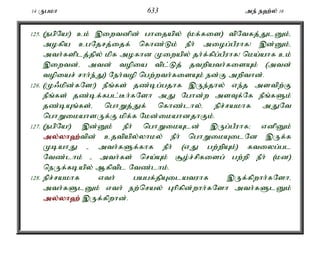 14 ருபமா 633 அந் நஹ்ல் 16
125. (நபியே) உம் இறைவனின் பாதையில் (மக்களை) விவேகத்துடனும்,
அழகிய உபதேசத்தைக் கொண்டும் நீர் அழைப்பீராக! இன்னும்,
அவர்களிடத்தில் மிக அழகான முறையில் தர்க்கிப்பீராக! மெய்யாக உம்
இறைவன், அவன் வழியை விட்டுத் தவறியவர்களையும் (அவன்
வழியைச் சார்ந்து) நேர்வழி பெற்றவர்களையும் நன்கு அறிவான்.
126. (மூஃமின்களே!) நீங்கள் தண்டிப்பதாக இருந்தால் எந்த அளவிற்கு
நீங்கள் தண்டிக்கபட்டீர்களோ அது போன்ற அளவுக்கே நீங்களும்
தண்டியுங்கள், பொறுத்துக் கொண்டால், நிச்சயமாக அதுவே
பொறுமையாளருக்கு மிக்க மேன்மையானதாகும்.
127. (நபியே) இன்னும் நீர் பொறுமையுடன் இருப்பீராக; எனினும்
அல்லாஹ்வின் உதவியில்லாமல் நீர் பொறுமையுடைனே இருக்க
முடியாது - அவர்களுக்காக நீர் (எது பற்றியும்) கவலைப்பட
வேண்டாம் - அவர்கள் செய்யும் சூழ்ச்சிகளைப் பற்றி நீர் (மன)
நெருக்கடியில் ஆகிவிட வேண்டாம்.
128. நிச்சயமாக எவர் பயபக்தியுடையவராக இருக்கிறார்களோ,
அவர்களுடனும் எவர் நற்செயல் புரிகின்றார்களோ அவர்களுடனும்
அல்லாஹ் இருக்கிறான்.